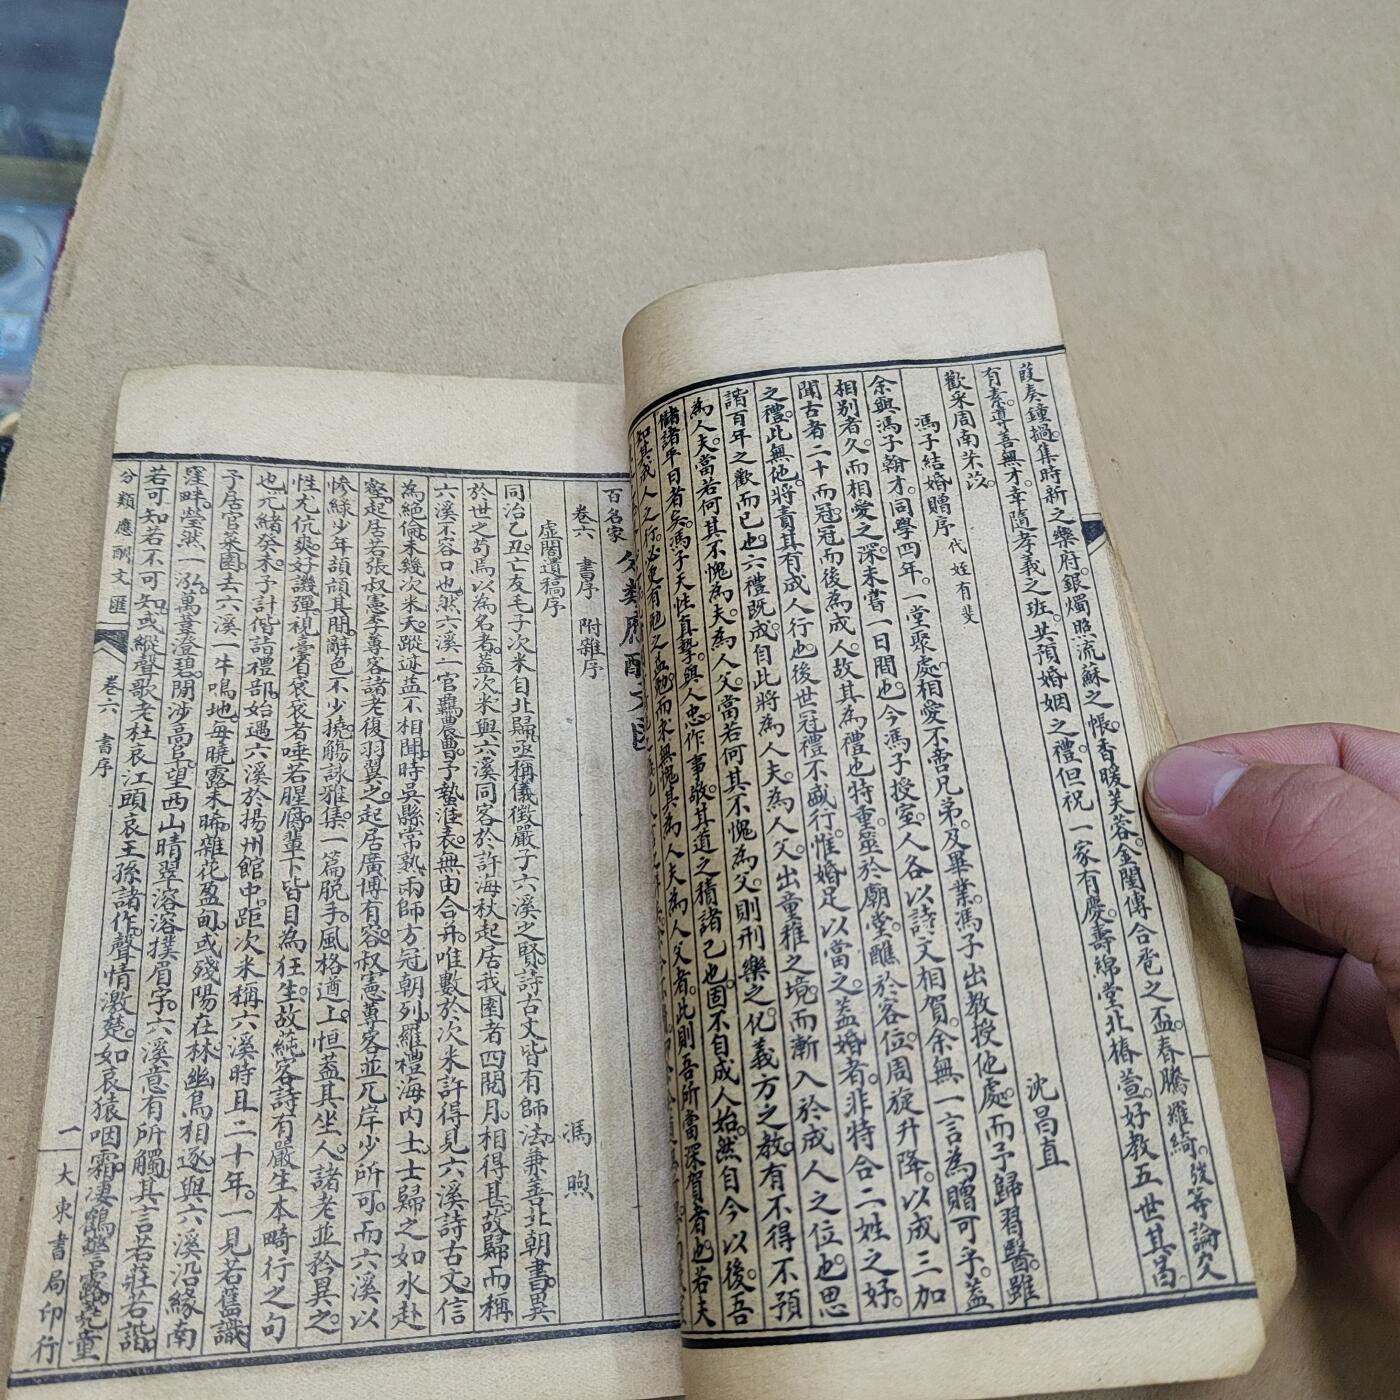 葭奏鐘撾集時新之樂府銀燭照流蘇之帳香暖芙蓉金閨傳合卺之盃春騰羅綺弢等論久
有素遵善無才幸隨孝義之班共預婚姻之禮但祝一家有慶壽綿堂北椿萱好教五世其昌
歡采周南芣苡
馮子結婚贈序 代姪有斐 沈昌直
余與馮子翰才同學四年一堂聚處相愛不啻兄弟及畢業馮子出教授他處而予歸習醫雖
相别者久而相愛之深未嘗一日間也今馮子授室人各以詩文相賀余無一言為贈可乎蓋
聞古者二十而冠冠而後為成人故其為禮也特重筮於廟堂醮於客位周旋升降以成三加
之禮此無他將責其有成人行也後世冠禮不盛行惟婚足以當之蓋婚者非特合二姓之好
諧百年之歡而已也六禮既成自此將為人夫為人父出童稚之境而漸入於成人之位也思
為人夫當若何其不愧為夫為人父當若何其不愧為父則刑樂之化義方之教有不得不預
儲諸平日者矣馮子天性真摯與人忠作事敬其道之積諸己也固不自成人始然自今以後吾
知其成人之行必更有勉之益勉而求無愧其為人夫為人父者此則吾所當深賀者也若夫
百名家分類應酬文匯
卷六 書序 附雜序
虛閣遺稿序 馮煦
同治乙丑亡友毛子次米自北歸亟稱儀徵嚴子六溪之賢詩古文皆有師法兼善北朝書異
於世之苟焉以為名者蓋次米與六溪同客於許海秋起居我園者四閱月相得甚故歸而稱
六溪不容口也然六溪一官鸛農曹子蟄淮表無由合并唯數於次米許得見六溪詩古文信
為絕倫未幾次米夭蹤迹益不相聞時吳縣常熟兩師方冠朝列羅禮海內士士歸之如水赴
壑起居若張叔憲李尊客諸老復羽翼之起居廣博有容叔憲蓴客並兀岸少所可而六溪以
慘綠少年頡頏其間辭色不少撓觴詠雅集一篇脫手風格遒上恒蓋其坐人諸老並矜異之
性尤伉爽好譏彈視臺省衮衮者唾若腥腐輩下皆目為狂生故純客詩有嚴生本畸行之句
也光緒癸未予計偕詣禮部始遇六溪於揚州館中距次米稱六溪時且二十年一見若舊識
予居官菜園去六溪一牛鳴地每曉露未晞雜花盈甸或殘陽在林幽鳥相逐與六溪沿緣南
窪畔瑩然一泓萬葦澄碧間涉高阜望西山晴翠溶溶撲眉宇六溪意有所觸其言若莊若諧
若可知若不可知或縱聲歌老杜哀江頭哀王孫諸作聲情激楚如哀猿咽霜淒鶴警露堯童
分類應酬文匯 卷六 書序 一 大東書局印行